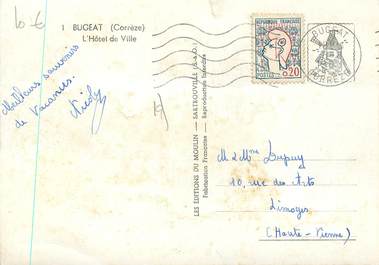 10 €
1 BUGEAT (Corrèze)
L'Hôtel de Ville
Meilleurs souvenirs
de Vacances.
Nicole
19
LES EDITIONS DU MOULIN — SARTROUVILLE (S.-&-O.)
Fabrication Française — Reproduction Interdite
REPUBLIQUE FRANÇAISE
POSTES
0,20
BUGEAT
CORREZE
M & Mme Dupuy
10, rue des Arts
Limoges
(Haute-Vienne)